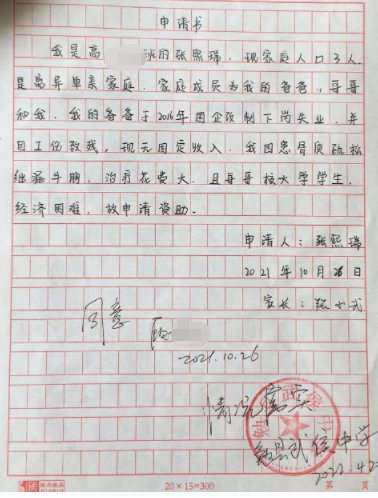 申请书
我是高 班的张熙瑞，现家庭人口3人，
是离异单亲家庭。家庭成员为我的爸爸，哥哥
和我。我的爸爸于2016年因企改制下岗失业，并
因工伤致残，现无固定收入。我因患骨质疏松
继漏斗胸，治疗花费大，且哥哥按大学学生，
经济困难，故申请资助。
申请人：张熙瑞
2021年10月26日
家长：张小武
同意
2021.10.26
情况属实
勉县武侯中学
2022.4.2
20×15=300
第 页